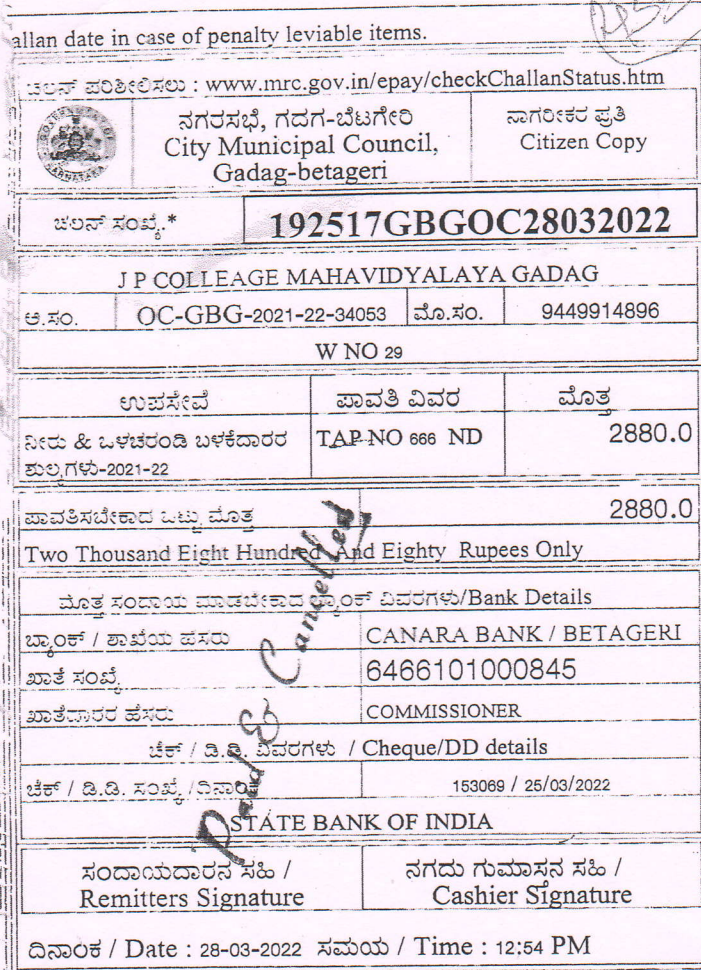 allan date in case of penalty leviable items.
ಚಲನ್ ಪರಿಶೀಲಿಸಲು : www.mrc.gov.in/epay/checkChallanStatus.htm
ನಗರಸಭೆ, ಗದಗ-ಬೆಟಗೇರಿ
City Municipal Council,
Gadag-betageri
ನಾಗರೀಕರ ಪ್ರತಿ
Citizen Copy
ಚಲನ್ ಸಂಖ್ಯೆ.* 192517GBGOC28032022
J P COLLEAGE MAHAVIDYALAYA GADAG
ಅ.ಸಂ. OC-GBG-2021-22-34053 ಮೊ.ಸಂ. 9449914896
W NO 29
ಉಪಸೇವೆ ಪಾವತಿ ವಿವರ ಮೊತ್ತ
ನೀರು & ಒಳಚರಂಡಿ ಬಳಕೆದಾರರ TAP NO 666 ND 2880.0
ಶುಲ್ಕಗಳು-2021-22
ಪಾವತಿಸಬೇಕಾದ ಒಟ್ಟು ಮೊತ್ತ 2880.0
Two Thousand Eight Hundred And Eighty Rupees Only
ಮೊತ್ತ ಸಂದಾಯ ಮಾಡಬೇಕಾದ ಬ್ಯಾಂಕ್ ವಿವರಗಳು/Bank Details
ಬ್ಯಾಂಕ್ / ಶಾಖೆಯ ಹೆಸರು CANARA BANK / BETAGERI
ಖಾತೆ ಸಂಖ್ಯೆ 6466101000845
ಖಾತೆದಾರರ ಹೆಸರು COMMISSIONER
ಚೆಕ್ / ಡಿ.ಡಿ. ವಿವರಗಳು / Cheque/DD details
ಚೆಕ್ / ಡಿ.ಡಿ. ಸಂಖ್ಯೆ /ದಿನಾಂಕ 153069 / 25/03/2022
STATE BANK OF INDIA
Paid & Cancelled
ಸಂದಾಯದಾರನ ಸಹಿ /
Remitters Signature
ನಗದು ಗುಮಾಸನ ಸಹಿ /
Cashier Signature
ದಿನಾಂಕ / Date : 28-03-2022 ಸಮಯ / Time : 12:54 PM